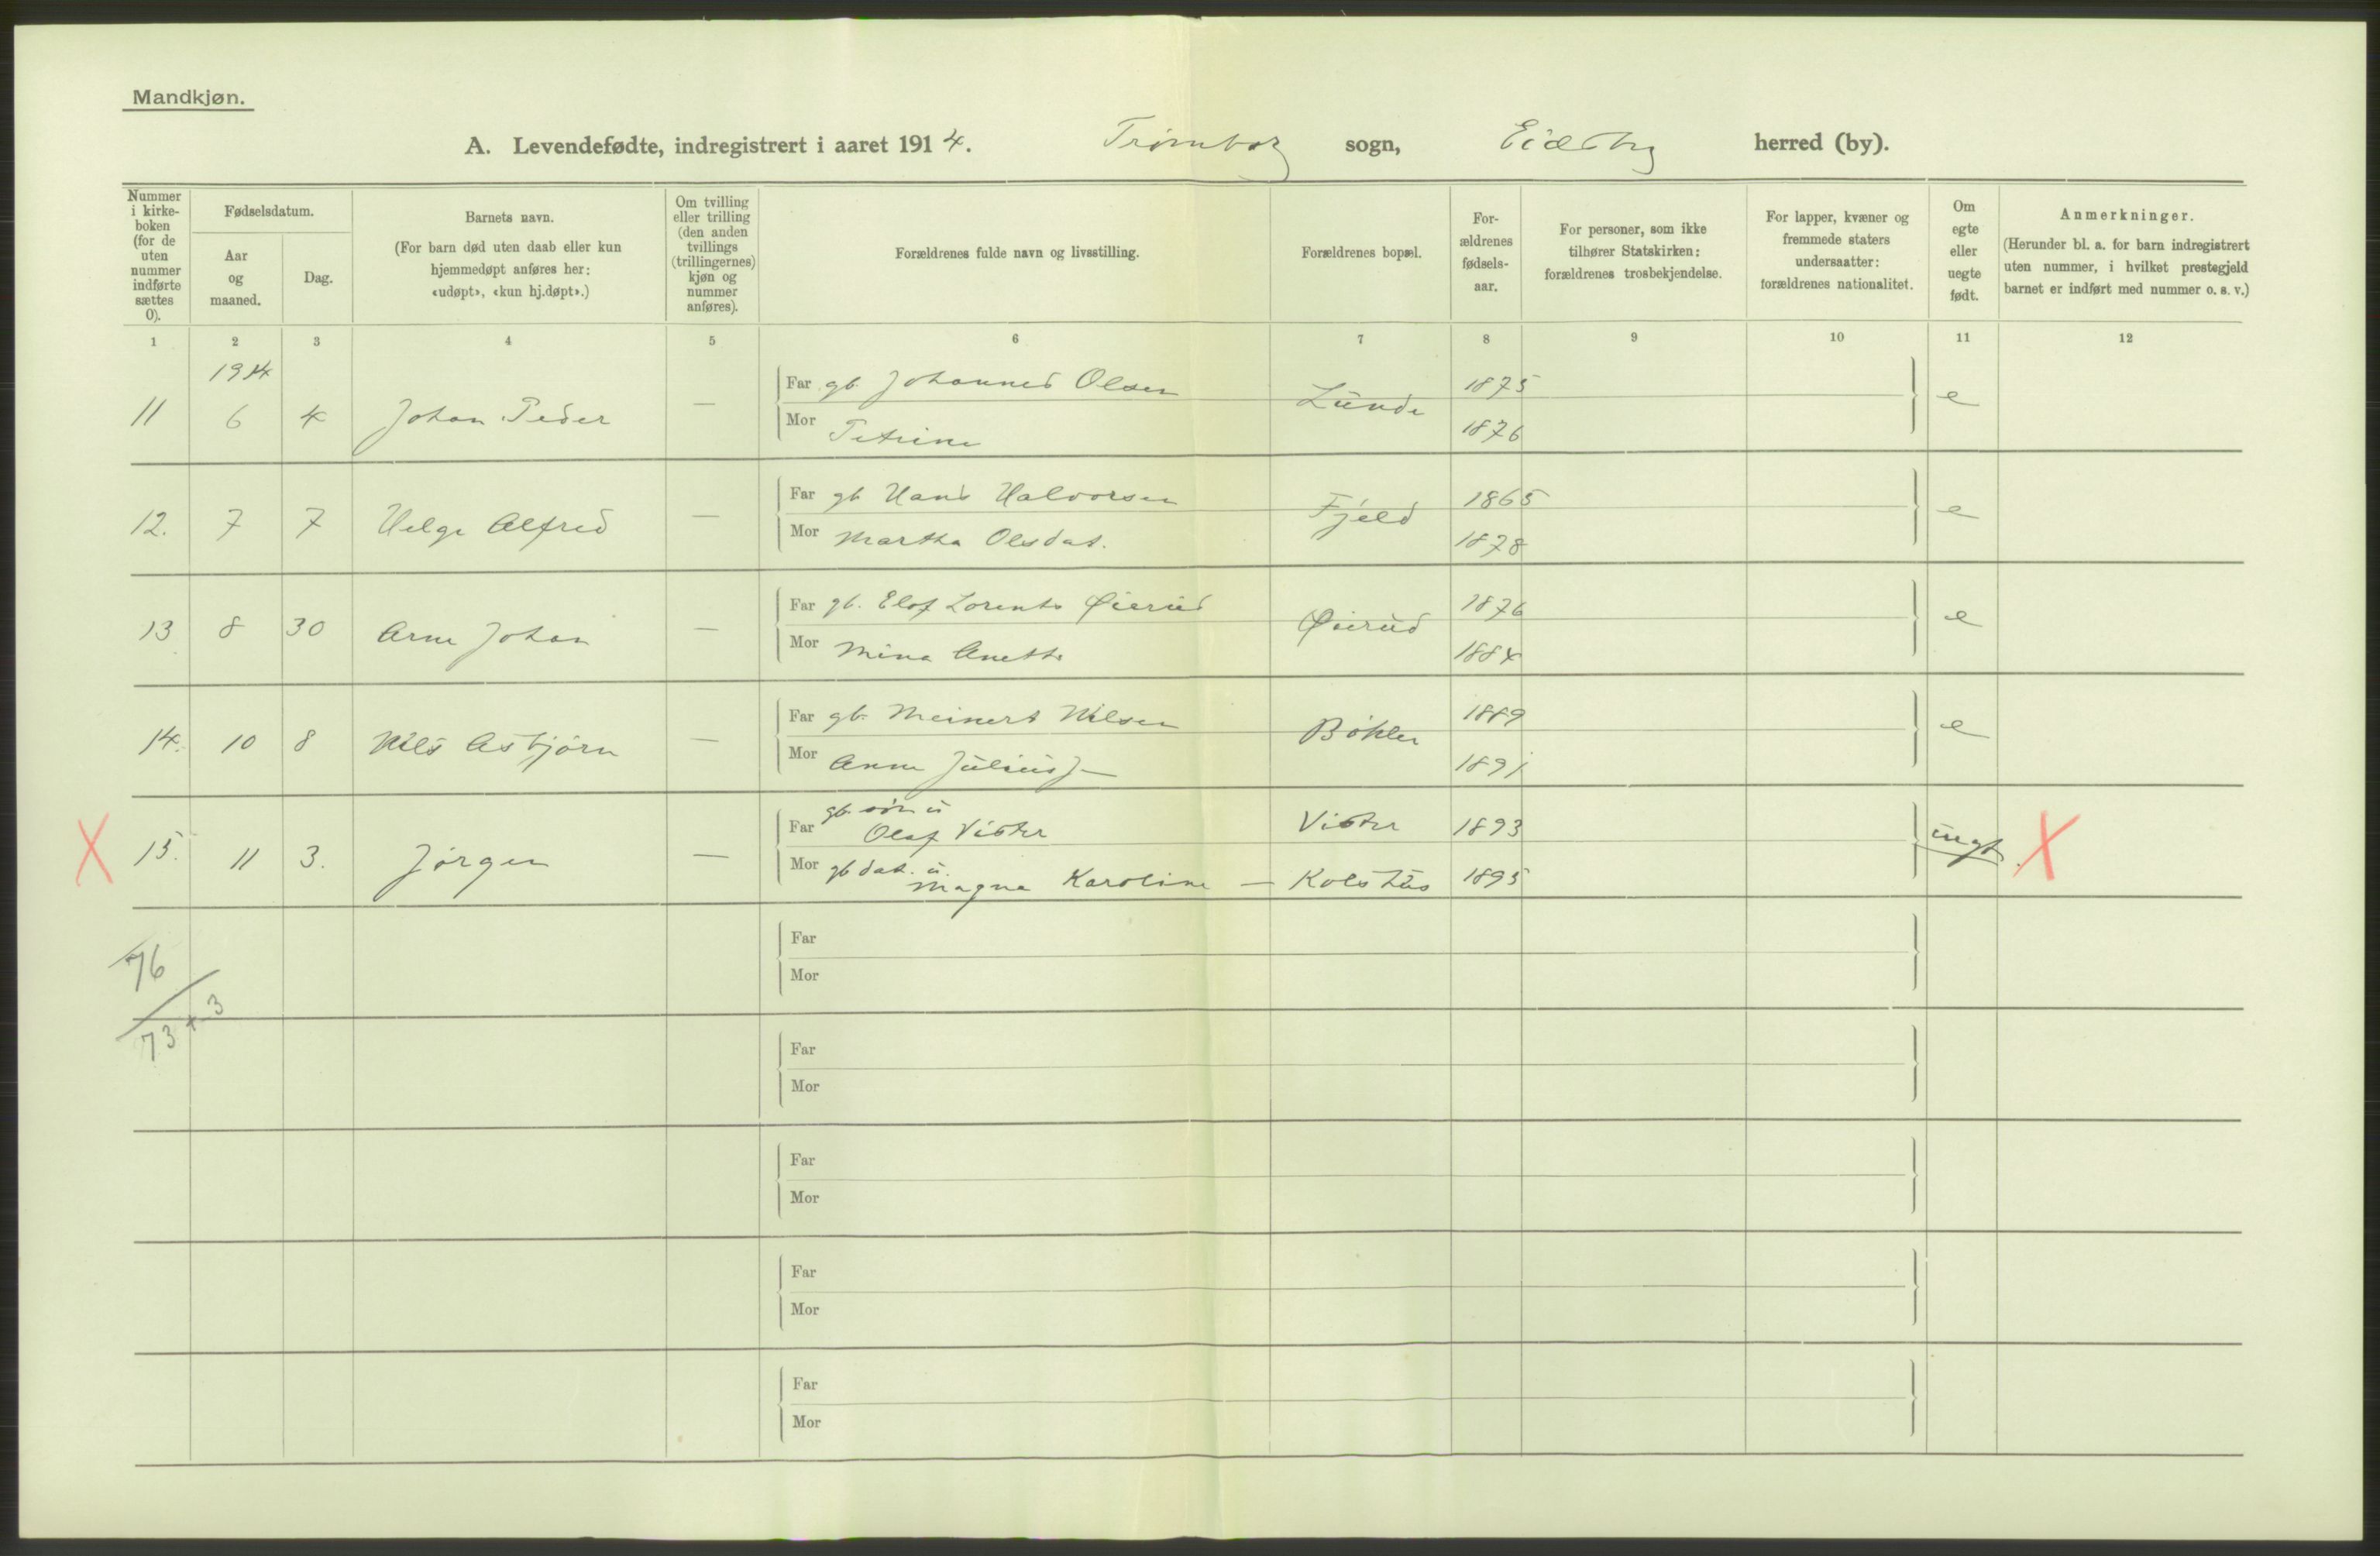 Mandkjøn.
A. Levendefødte, indregistrert i aaret 1914. Trømborg sogn, Eidsberg herred (by).
Nummer i kirkeboken (for de uten nummer indførte sættes 0).
Fødselsdatum.
Aar og maaned.
Dag.
Barnets navn.
(For barn død uten daab eller kun hjemmedøpt anføres her: «udøpt», «kun hj.døpt».)
Om tvilling eller trilling (den anden tvillings (trillingernes) kjøn og nummer anføres).
Forældrenes fulde navn og livsstilling.
Forældrenes bopæl.
Forældrenes fødselsaar.
For personer, som ikke tilhører Statskirken: forældrenes trosbekjendelse.
For lapper, kvæner og fremmede staters undersaatter: forældrenes nationalitet.
Om egte eller uegte født.
Anmerkninger.
(Herunder bl. a. for barn indregistrert uten nummer, i hvilket prestegjeld barnet er indført med nummer o. s. v.)
1 2 3 4 5 6 7 8 9 10 11 12
1914
11 6 4 Johan Peder — Far gb. Johannes Olsen Lunde 1875 e
Mor Petrine 1876
12. 7 7 Helge Alfred — Far gb Hans Halvorsen Fjeld 1865 e
Mor Martha Olsdat. 1878
13 8 30 Arne Johan — Far gb. Elof Lorents Øierud Øierud 1876 e
Mor Mina Anette 1884
14. 10 8 Nils Asbjørn — Far gb. Meinert Nilsen Bøhler 1889 e
Mor Anna 1891
X 15. 11 3. Jørgen — Far gb. søn u Olaf Vister Vister 1893 uegt. X
Mor gb dat. u. Magna Karoline — Kolstad 1895
76
73 + 3
Far
Mor
Far
Mor
Far
Mor
Far
Mor
Far
Mor